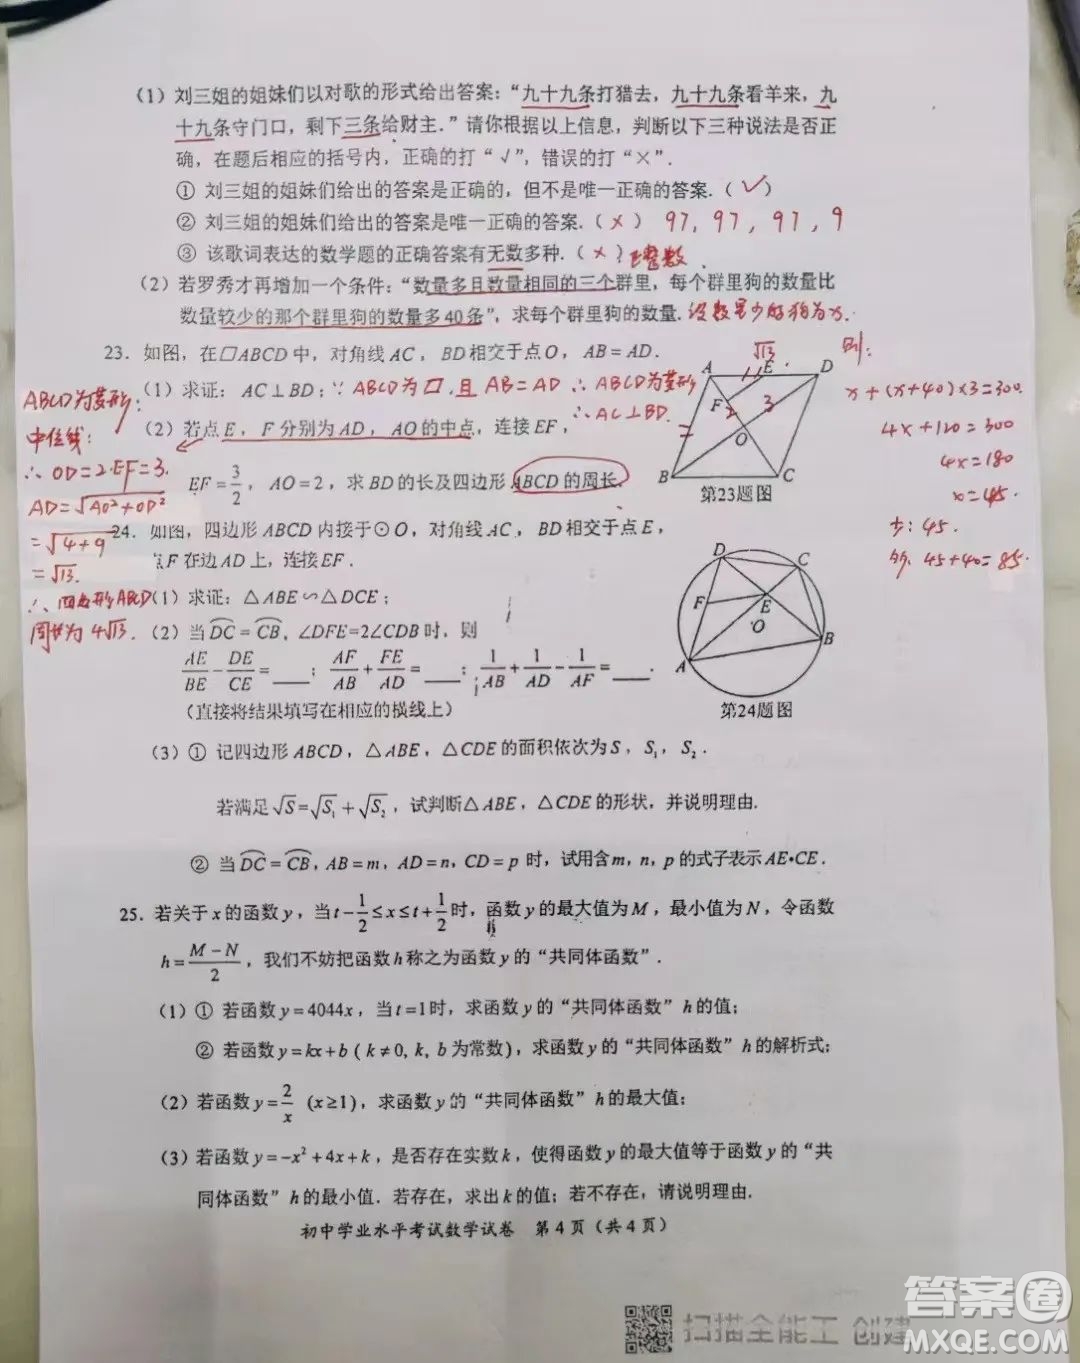 (1) 刘三姐的姐妹们以对歌的形式给出答案：“九十九条打猎去，九十九条看羊来，九
十九条守门口，剩下三条给财主．”请你根据以上信息，判断以下三种说法是否正
确，在题后相应的括号内，正确的打“√”，错误的打“×”．
① 刘三姐的姐妹们给出的答案是正确的，但不是唯一正确的答案．( √ )
② 刘三姐的姐妹们给出的答案是唯一正确的答案．( × ) 97, 97, 97, 9
③ 该歌词表达的数学题的正确答案有无数多种．( × ) 正整数．
(2) 若罗秀才再增加一个条件：“数量多且数量相同的三个群里，每个群里狗的数量比
数量较少的那个群里狗的数量多40条”，求每个群里狗的数量．设数量少的狗为x．
则：
x+(x+40)×3=300.
4x+120=300
4x=180
x=45.
少：45.
多：45+40=85.
23．如图，在□ABCD中，对角线AC，BD相交于点O，AB=AD．
(1) 求证：AC⊥BD；∵ABCD为□．且AB=AD ∴ABCD为菱形
∴AC⊥BD.
(2) 若点E，F分别为AD，AO的中点，连接EF，
EF=3/2，AO=2，求BD的长及四边形ABCD的周长．
ABCD为菱形；
中位线：
∴OD=2·EF=3.
AD=√AO²+OD²
=√4+9
=√13.
∴四边形ABCD
周长为4√13.
√13
A E D
F 2 3
O
B C
第23题图
24．如图，四边形ABCD内接于⊙O，对角线AC，BD相交于点E，
点F在边AD上，连接EF．
(1) 求证：△ABE∽△DCE；
(2) 当DC⌒=CB⌒，∠DFE=2∠CDB时，则
AE/BE−DE/CE=____；AF/AB+FE/AD=____；1/AB+1/AD−1/AF=____．
(直接将结果填写在相应的横线上)
D C
F E
O B
A
第24题图
(3) ① 记四边形ABCD，△ABE，△CDE的面积依次为S，S₁，S₂．
若满足√S=√S₁+√S₂，试判断△ABE，△CDE的形状，并说明理由．
② 当DC⌒=CB⌒，AB=m，AD=n，CD=p时，试用含m，n，p的式子表示AE•CE．
25．若关于x的函数y，当t−1/2≤x≤t+1/2时，函数y的最大值为M，最小值为N，令函数
h=(M−N)/2，我们不妨把函数h称之为函数y的“共同体函数”．
(1) ① 若函数y=4044x，当t=1时，求函数y的“共同体函数”h的值；
② 若函数y=kx+b ( k≠0, k, b为常数)，求函数y的“共同体函数”h的解析式；
(2) 若函数y=2/x (x≥1)，求函数y的“共同体函数”h的最大值；
(3) 若函数y=−x²+4x+k，是否存在实数k，使得函数y的最大值等于函数y的“共
同体函数”h的最小值．若存在，求出k的值；若不存在，请说明理由．
初中学业水平考试数学试卷 第4页（共4页）
扫描全能王 创建
答案圈
MXQE.COM